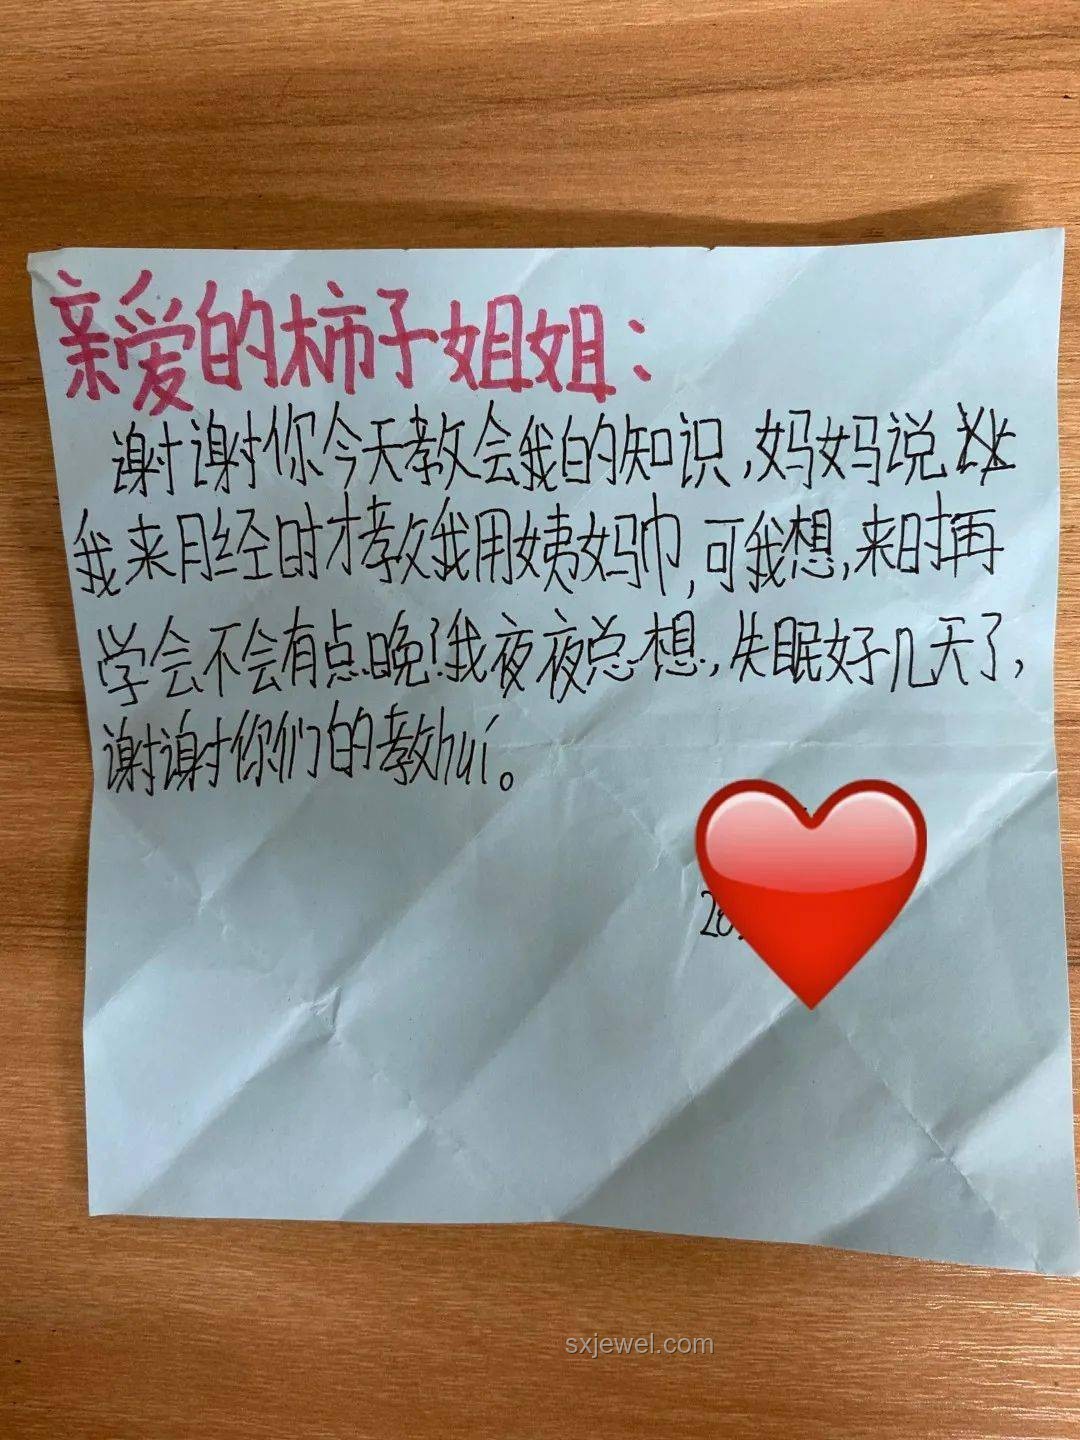 亲爱的柿子姐姐：
谢谢你今天教会我的知识,妈妈说
我来月经时才教我用姨妈巾,可我想,来时再
学会不会有点晚!我夜夜总想,失眠好几天了,
谢谢你们的教huí。
sxjewel.com